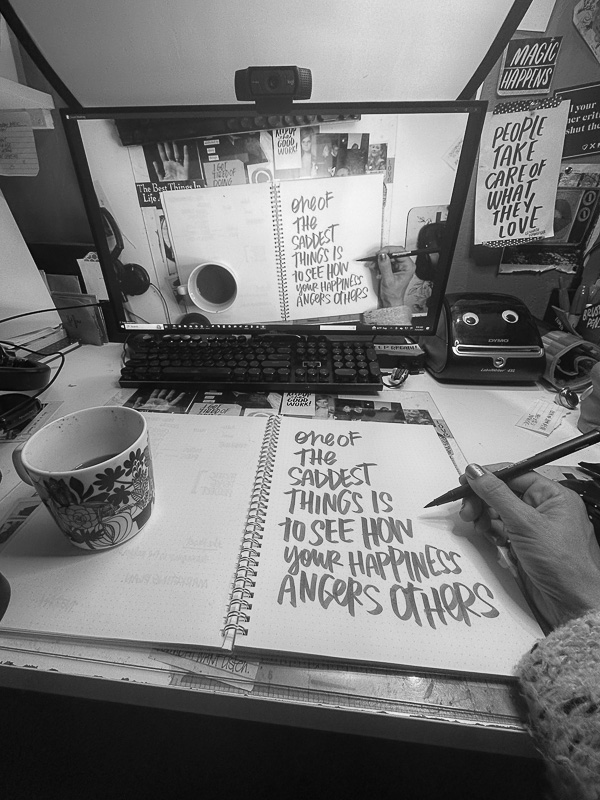 MAGIC
HAPPENS
PEOPLE
TAKE
CARE OF
WHAT
THEY
LOVE
your
KEEP UP
GOOD
WORK!
The Best Things In
Life
one of
THE
SADDEST
THINGS IS
to SEE HOW
your HAPPINESS
ANGERS OTHERS
DYMO
LabelWriter 450
KEEP UP
GOOD
WORK!
one of
THE
SADDEST
THINGS IS
to SEE HOW
your HAPPINESS
ANGERS OTHERS